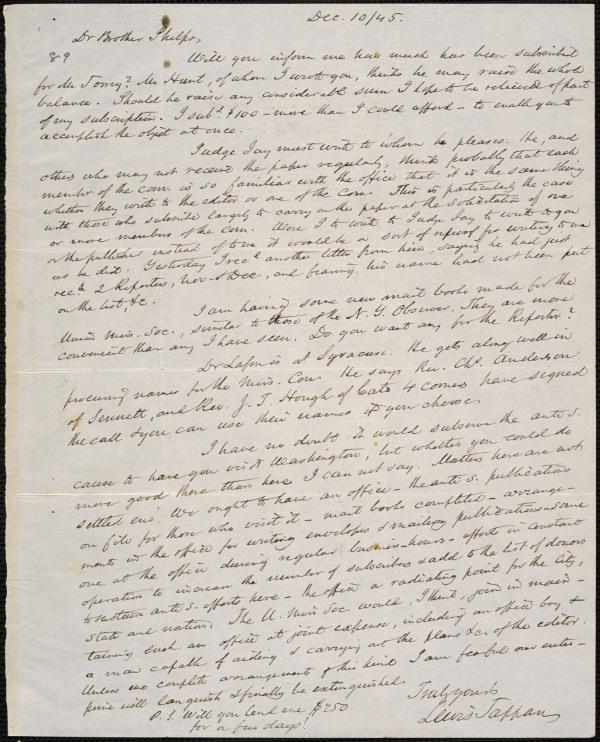 Dec. 10/45.
Dr Brother Phelps,
89
Will you inform me how much has been subscribed
for Mr Torrey? Mr Hunt, of whom I wrote you, thinks he may raise the whole
balance. Should he raise any considerable sum I hope to be relieved of part
of my subscription. I subd. $100 - more than I could afford - to enable you to
accomplish the object at once.
Judge Jay must write to whom he pleases. He, and
others who may not receive the paper regularly, think probably that each
member of the com. is so familiar with the office that it is the same thing
whether they write to the editor or one of the Com. This is particularly the case
with those who subscribe largely to carry on the paper at the solicitation of one
or more members of the com. Were I to write to Judge Jay to write to you
or the publisher instead of to me it would be a sort of reproof for writing to me
as he did. Yesterday I recd. another letter from him, saying he had just
recd. 2 Reporters, Nov. & Dec., and fearing his name had not been put
on the list, &c.
I am having some new mail books made for the
Union Miss. Soc., similar to those of the N. Y. Observer. They are more
convenient than any I have seen. Do you want any for the Reporter?
Dr Lafon is at Syracuse. He gets along well in
procuring names for the Miss. Con. He says Rev. Chs. Anderson
of Sennett, and Rev. J. T. Hough of Cato 4 corners have signed
the call & you can use their names if you choose.
I have no doubt it would subserve the anti s.
cause to have you visit Washington, but whether you could do
more good there than here I can not say. Matters here are not
settled eno'. We ought to have an office - the anti s. publications
on file for those who visit it - mail books completed - arrange-
ments in the office for writing envelopes & mailing publications - some
one at the office during regular business-hours - efforts in constant
operation to increase the number of subscribers & add to the list of donors
to sustain anti s. efforts here - the office a radiating point for the City,
State and nation. The U. Miss Soc would, I think, join in main-
taining such an office at joint expense, including an office boy &
a man capable of aiding & carrying out the plans &c. of the editor.
Unless we complete arrangements of this kind I am fearful our enter-
prise will languish & finally be extinguished.
Truly yours
Lewis Tappan
P.S. Will you lend me $250
for a few days?